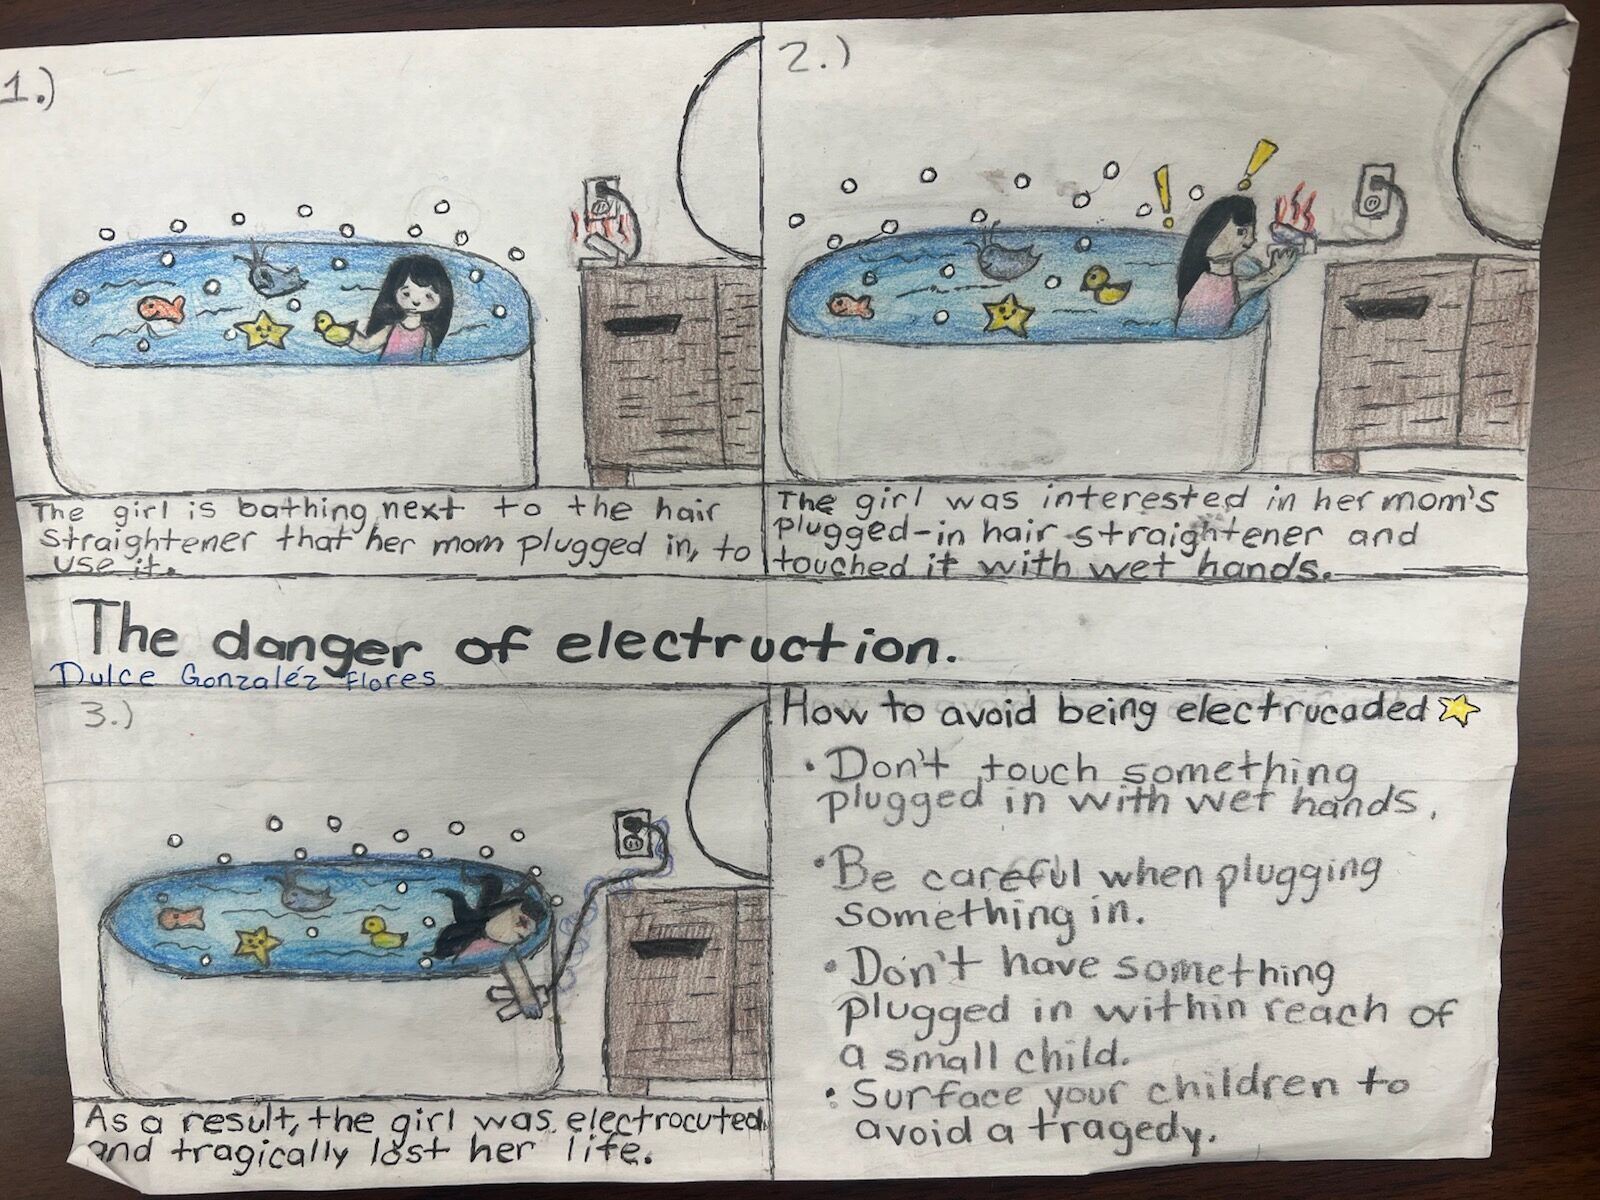 1.)
The girl is bathing next to the hair
straightener that her mom plugged in, to
use it.
2.)
The girl was interested in her mom's
plugged-in hair straightener and
touched it with wet hands.
The danger of electruction.
Dulce Gonzaléz Flores
3.)
As a result, the girl was electrocuted
and tragically lost her life.
How to avoid being electrucaded
• Don't touch something
plugged in with wet hands.
• Be careful when plugging
something in.
• Don't have something
plugged in within reach of
a small child.
• Surface your children to
avoid a tragedy.